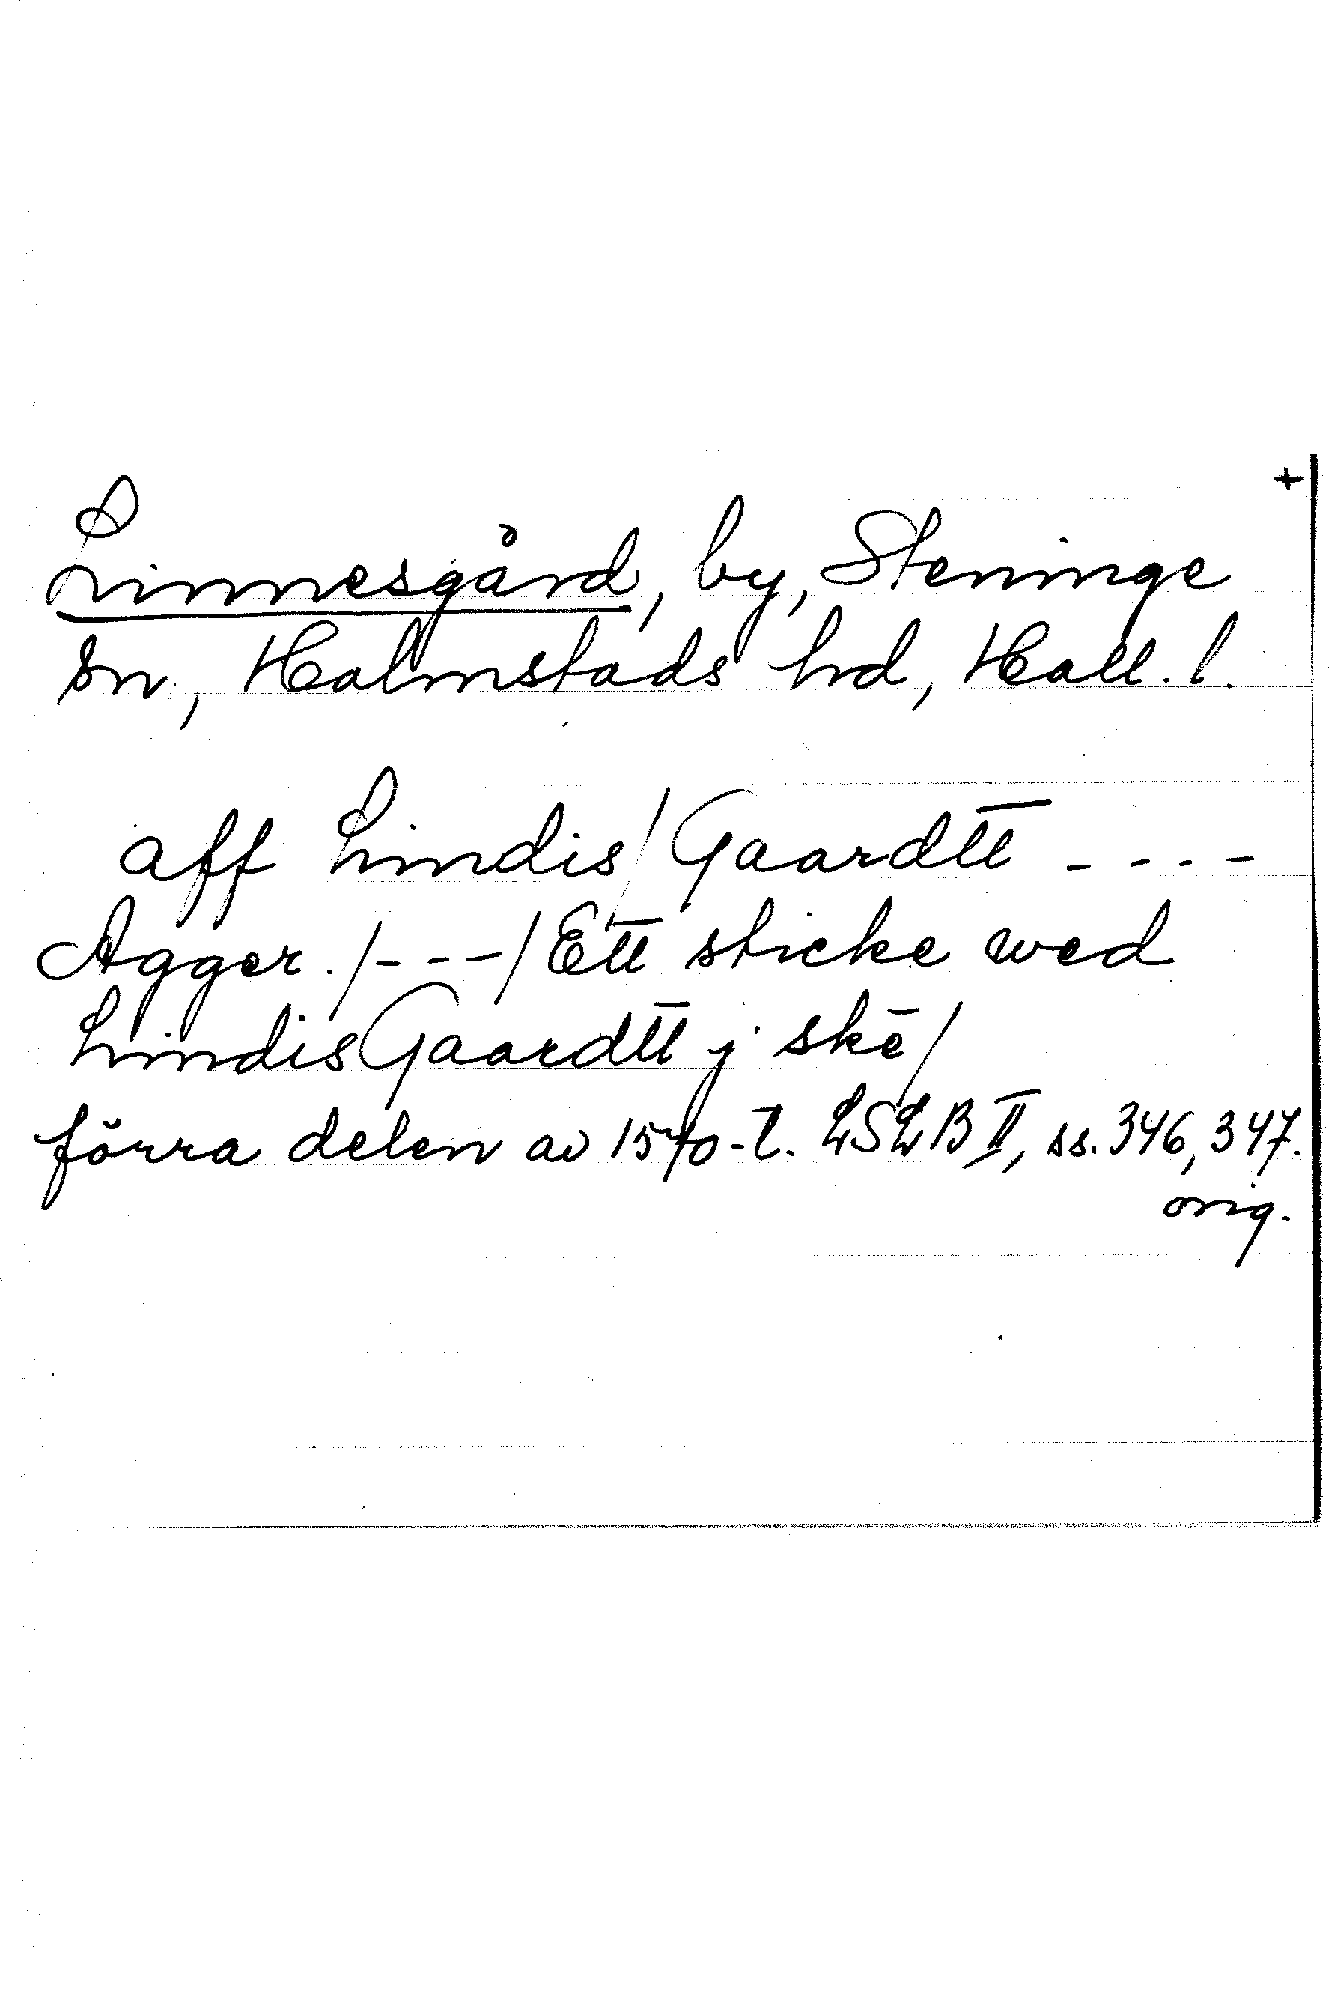 +
Linnesgård, by, Steninge
sn, Halmstads hd, Hall. l.
aff Lindis/Gaardtt ----
Agger./---/Ett sticke wed
LindisGaardtt j skē/
förra delen av 1570-t. LSLB II, ss. 346, 347.
orig.